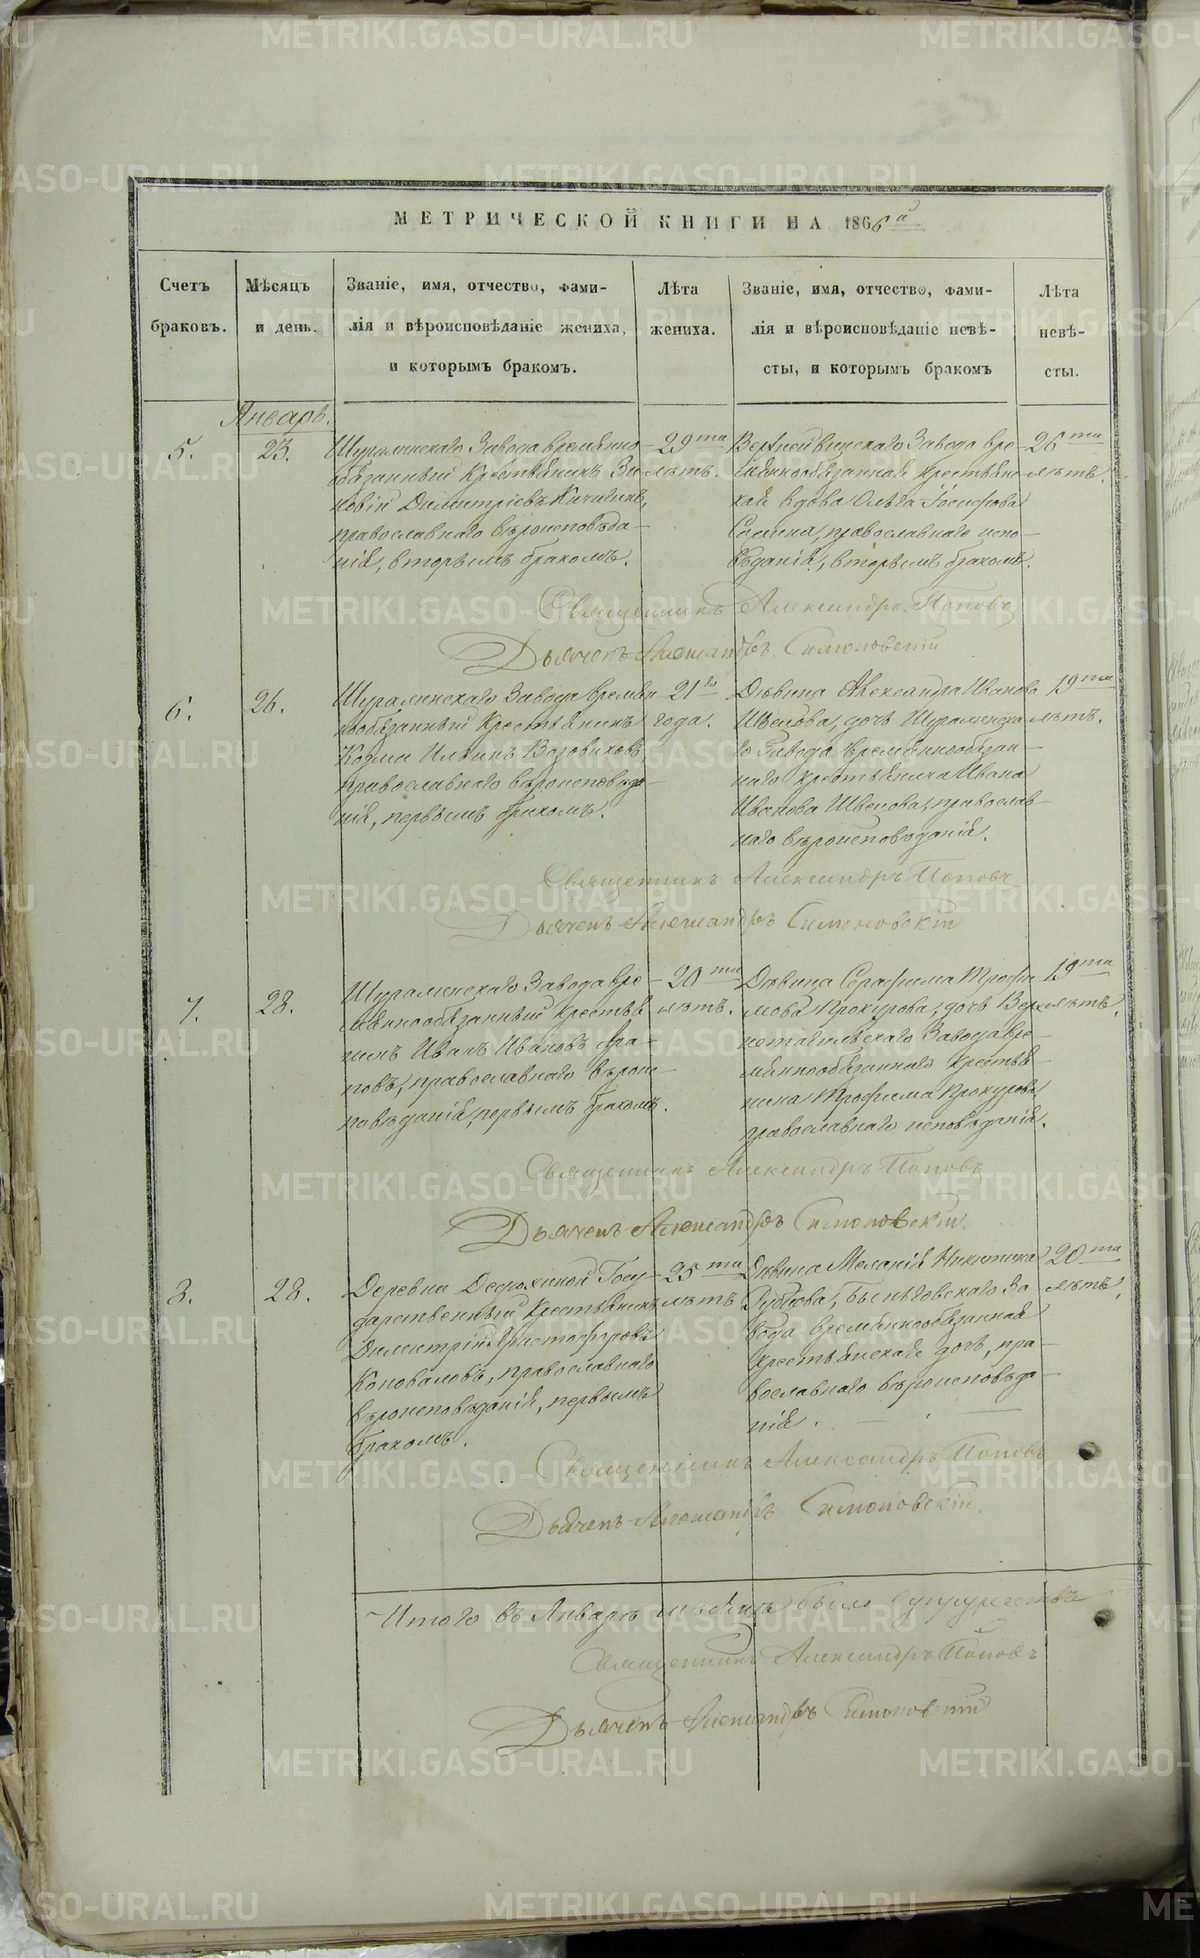 МЕТРИЧЕСКОЙ КНИГИ НА 1866й
Счетъ браковъ.
Мѣсяцъ и день.
Званіе, имя, отчество, фами-
лія и вѣроисповѣданіе жениха,
и которымъ бракомъ.
Лѣта жениха.
Званіе, имя, отчество, фами-
лія и вѣроисповѣданіе невѣ-
сты, и которымъ бракомъ
Лѣта невѣ-
сты.
Январь.
5.
23.
Шуралинскаго Завода временно-
обязанный крестьянинъ Зи-
новій Димитріевъ
православнаго вѣроисповѣда-
нія, вторымъ бракомъ.
29ти
лѣтъ.
Верхнейвинскаго Завода вре-
меннообязанная крестьянс-
кая вдова Ольга Іосифова
православнаго испо-
вѣданія, вторымъ бракомъ.
26ти
лѣтъ.
Священникъ Александръ Поповъ
Дьячекъ Александръ
6.
26.
Шуралинскаго Завода времен-
нообязанный крестьянинъ
Козма Ильинъ
православнаго вѣроисповѣда-
нія, первымъ бракомъ.
21го
года.
Дѣвица Александра Иванова
Швецова, дочь Шуралинска-
го Завода временнообязан-
наго крестьянина Ивана
Иванова Швецова, православ-
наго вѣроисповѣданія.
19ти
лѣтъ.
Священникъ Александръ Поповъ
Дьячекъ Александръ
7.
28.
Шуралинскаго Завода вре-
меннообязанный крестья-
нинъ Иванъ Ивановъ
православнаго вѣроис-
повѣданія, первымъ бракомъ.
20ти
лѣтъ.
Дѣвица Серафима Трофи-
мова дочь Верх-
нетагильскаго Завода вре-
меннообязаннаго крестья-
нина Трофима
православнаго исповѣданія.
19ти
лѣтъ.
Священникъ Александръ Поповъ
Дьячекъ Александръ
8.
28.
Деревни Госу-
дарственный крестьянинъ
Димитрій Христофоровъ
Коноваловъ, православнаго
вѣроисповѣданія, первымъ
бракомъ.
25ти
лѣтъ
Дѣвица Меланія Никитина
Рубцова, Быньговскаго За-
вода временнообязанная
крестьянская дочь, пра-
вославнаго вѣроисповѣда-
нія.
20ти
лѣтъ.
Священникъ Александръ Поповъ
Дьячекъ Александръ
Итого въ Январѣ мѣсяцѣ было
Священникъ Александръ Поповъ
Дьячекъ Александръ
METRIKI.GASO-URAL.RU